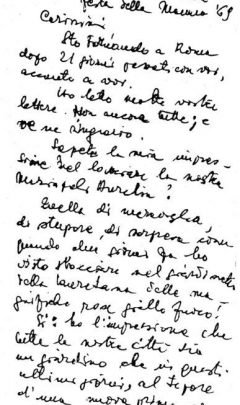 Festa della Mamma '69
Carissimi
Sto tornando a Roma
dopo 21 giorni passati con voi,
accanto a voi.
Ho letto molte vostre
lettere. Non ancora tutte; e
ve ne ringrazio.
Sapete la mia impres-
sione nel lasciare la nostra
Aurelia?
Quella di meraviglia,
di stupore, di sorpresa come
quando alcuni giorni fa ho
visto sbocciare nel giardinetto
della lauretana delle ma-
gnifiche rose giallo fuoco.
Sì: ho l'impressione che
tutte la nostra città sia
un giardino che in questi
ultimi giorni, al tepore
d'una nuova